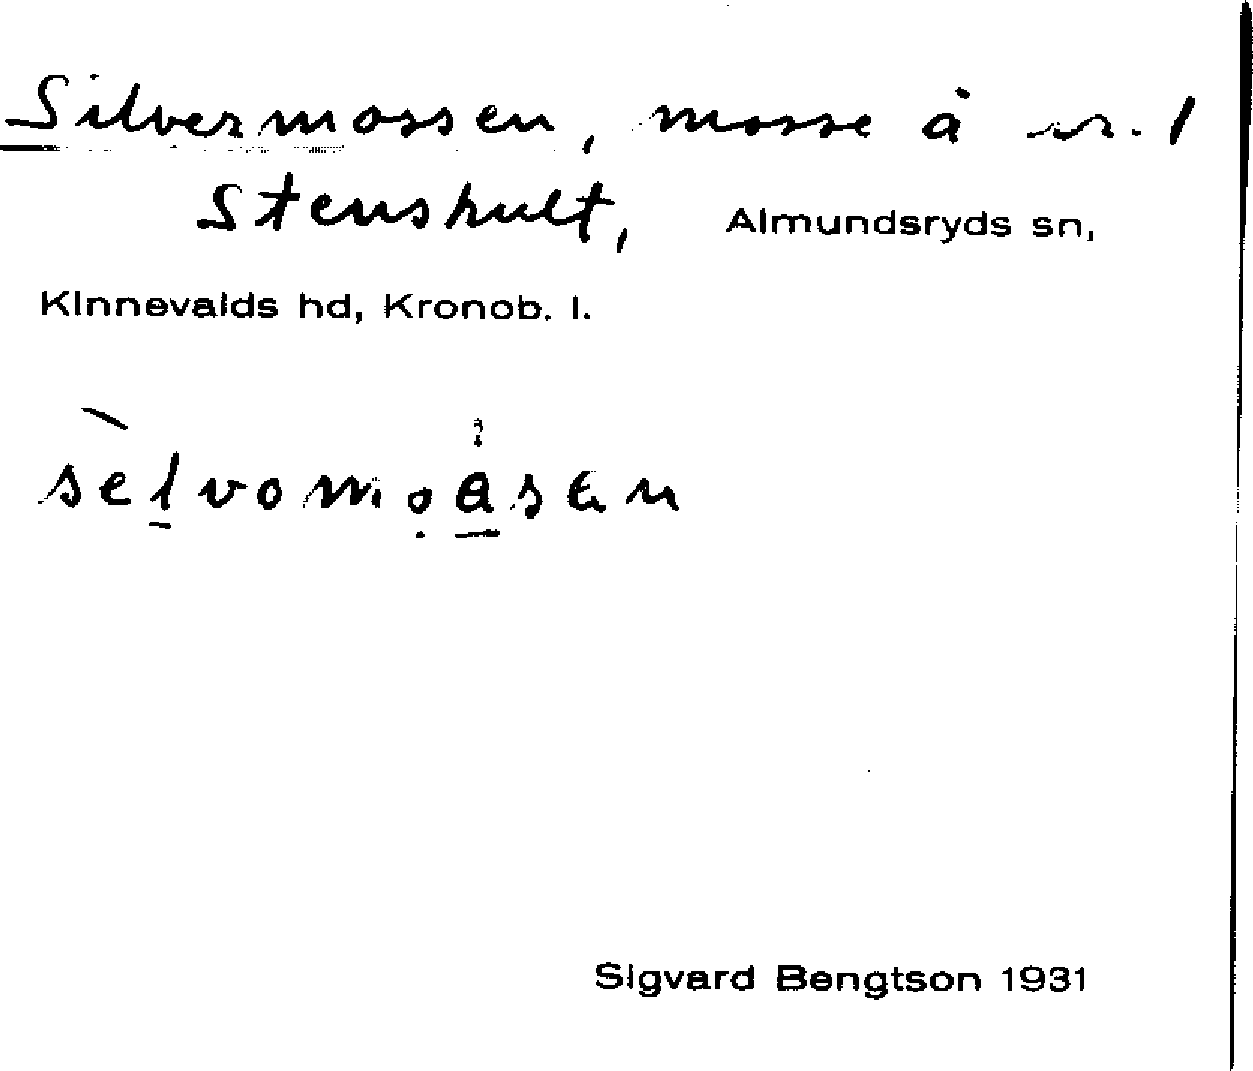 Silvermossen, mosse å nr. 1
Stenshult, Almundsryds sn,
Kinnevalds hd, Kronob. l.
selvomoåsen
Sigvard Bengtson 1931